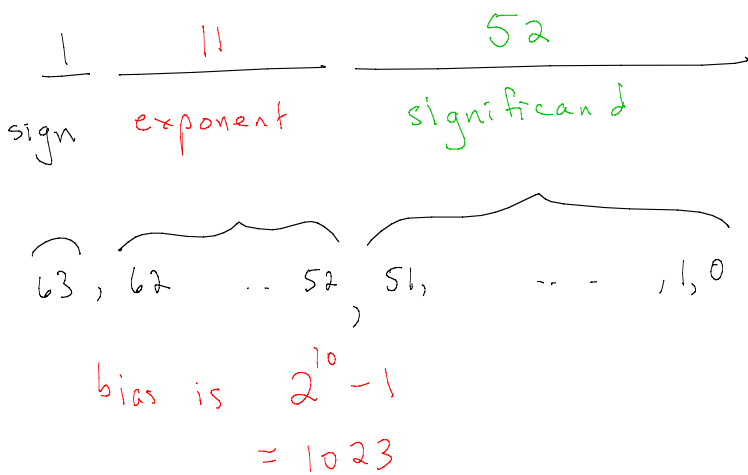 1 11 52
sign exponent significand
63, 62 .. 52, 51, ... , 1, 0
bias is 2^10 - 1
= 1023